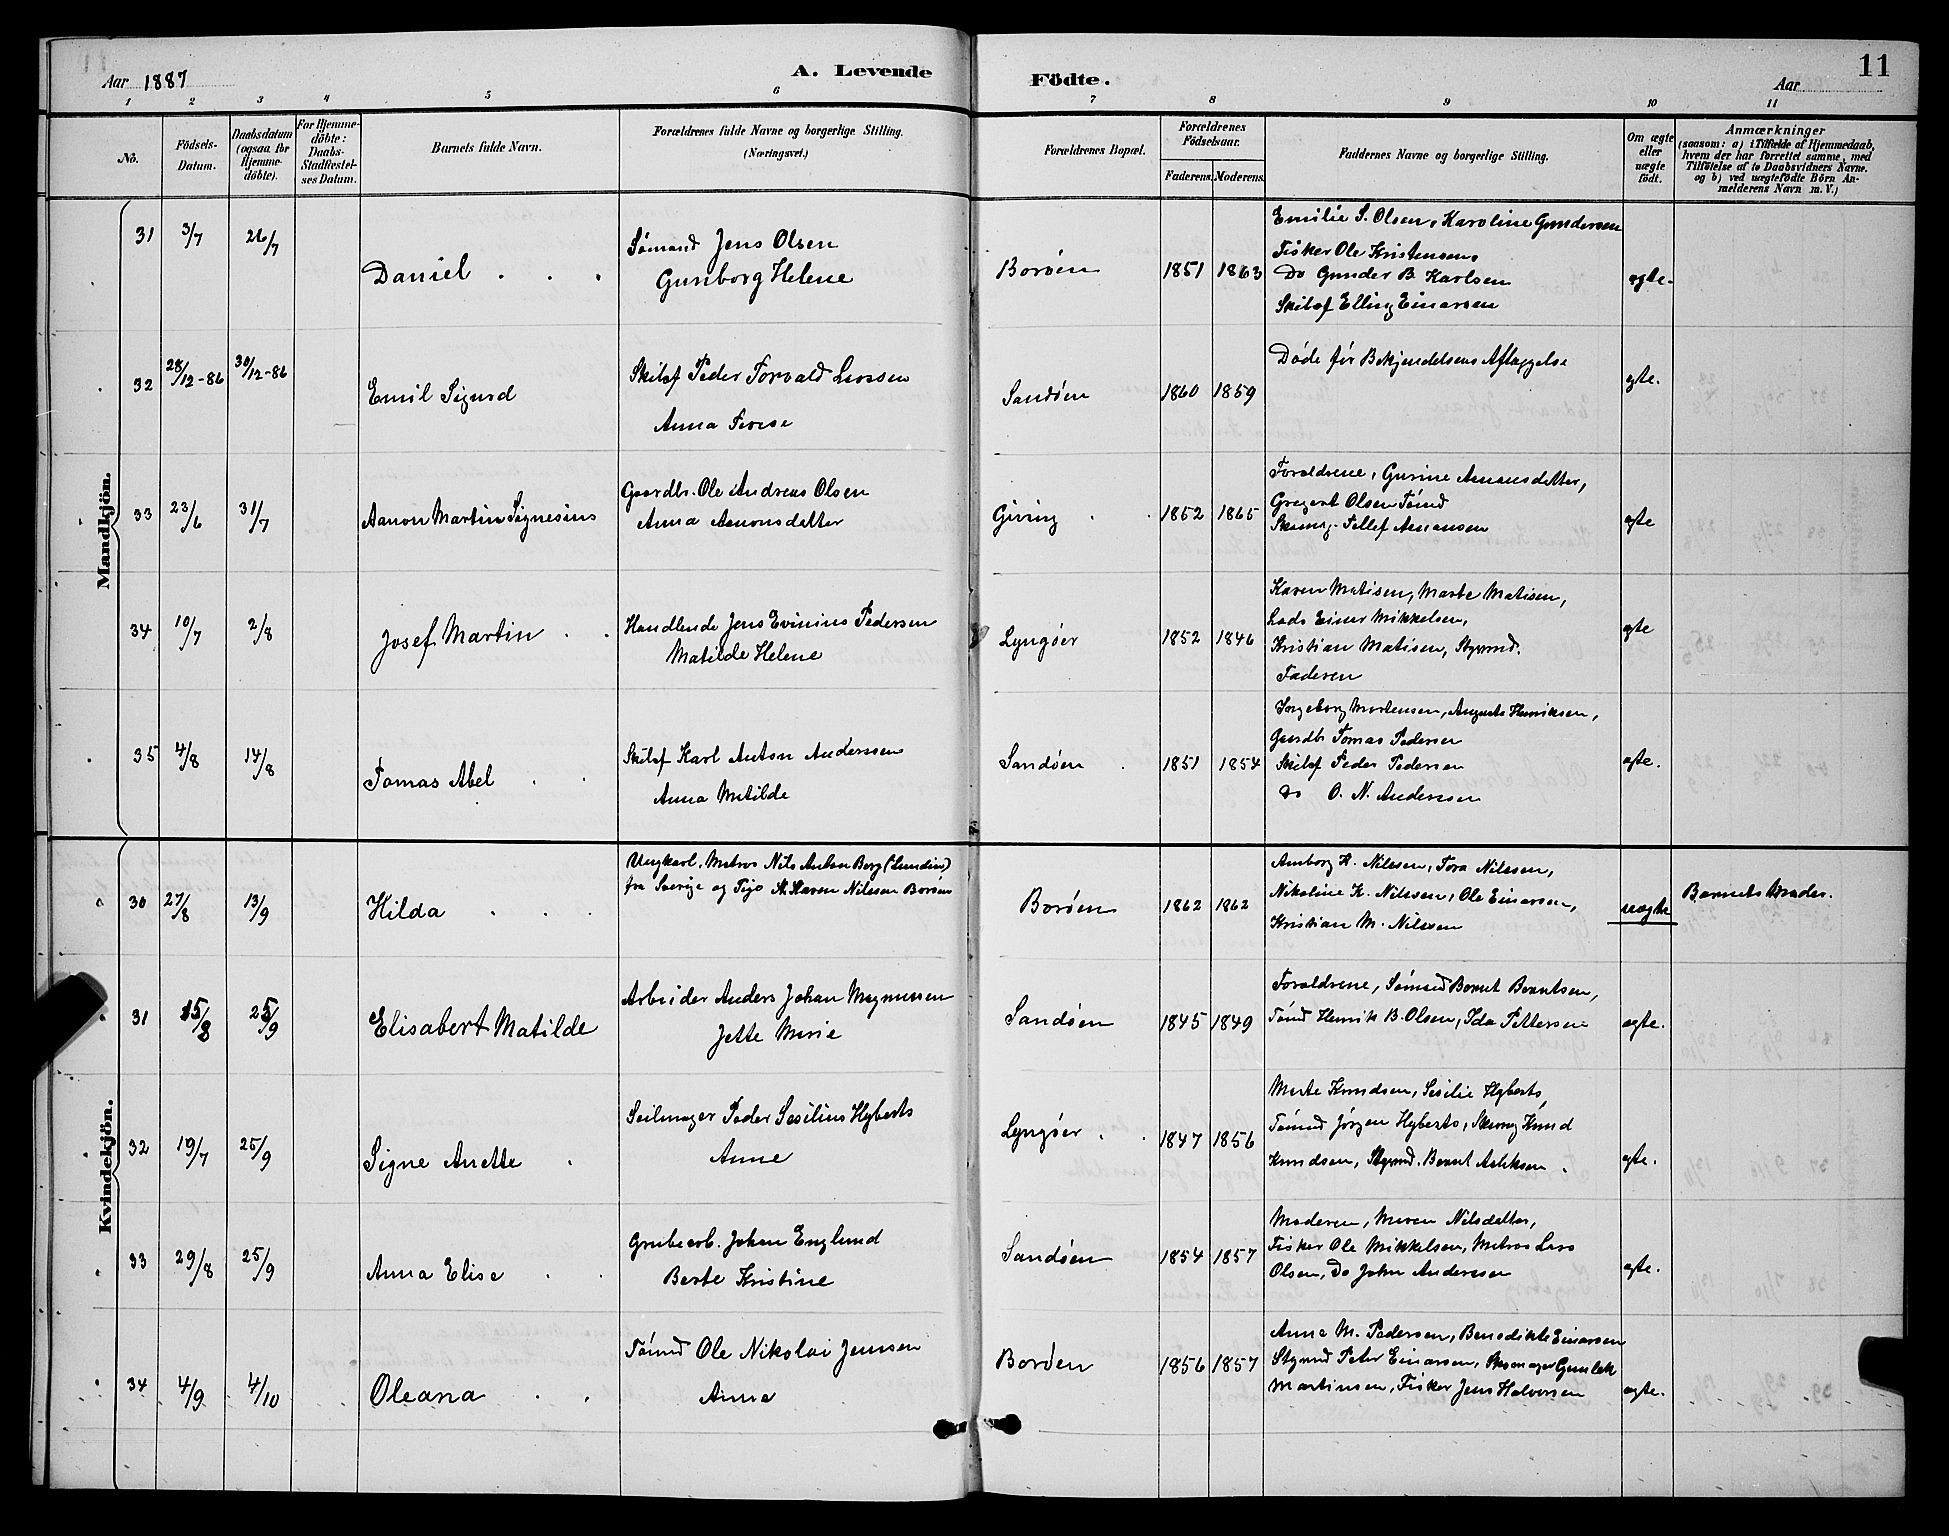 Aar 1887
A. Levende
Födte.
Aar
11
1 2 3 4 5 6 7 8 9 10 11
No.
Födsels-Datum.
Daabsdatum (ogsaa for Hjemme-döbte).
For Hjemme-döbte: Daabs-Stadfæstel-ses Datum.
Barnets fulde Navn.
Forældrenes fulde Navne og borgerlige Stilling.
(Næringsvei.)
Forældrenes Bopæl.
Forældrenes Födselsaar.
Faderens. Moderens.
Faddernes Navne og borgerlige Stilling.
Om ægte eller uægte födt.
Anmærkninger
(saasom: a) i Tilfælde af Hjemmedaab,
hvem der har forrettet samme, med
Tilföielse af to Daabsvidners Navne.
og b) ved uægtefödte Börn An-
melderens Navn m. V.)
Mandkjön.
31 3/7 26/7 Daniel
Sömand Jens Olsen
Gunborg Helene
Boröen 1851 1863
Emilie S. Olsen, Karoline Gundersen
Fisker Ole Kristensen
Do Gunder B. Karlsen
Skibsf Elling Einarsen
ægte.
32 28/12-86 30/12-86 Emil Sigurd
Skibsf Peder Torvald
Anna
Sandöen 1860 1859
Döde för Bekjendelsens Aflæggelse
ægte.
33 23/6 31/7 Aanon Martin Signesius
Gaardbr. Ole Andreas Olsen
Anna Aanonsdatter
Giving 1852 1865
Forældrene, Gurine Aanonsdatter,
Gregert Olsen Tömd
Tellef Aanonsen
ægte
34 10/7 2/8 Josef Martin
Handlende Jens Evinius Pedersen
Matilde Helene
Lyngöer 1852 1846
Karen Matisen, Marte Matisen,
Lods Einer Mikkelsen,
Kristian Matisen, Styrmd.
Faderen
ægte
35 4/8 14/8 Tomas Abel
Skibsf Karl Anton Anderssen
Anna Matilde
Sandöen 1851 1854
Ingeborg Mortensen, Augusta Henriksen,
Gaardbr Tomas Pedersen
Skibsf Peder Pedersen
Do O. N. Anderssen
ægte.
Kvindekjön.
30 27/8 13/9 Hilda
Ungkarl, Matros Nils Anton Berg (Lundin)
fra Sverige og Pige A. Karen Nilssen Boröen
Boröen 1862 1862
Amborg K. Nilssen, Tora Nilssen,
Nikoline K. Nilssen, Ole Einarsen,
Kristian M. Nilssen
uægte
Barnets Moder.
31 15/8 25/9 Elisabert Matilde
Arbeider Anders Johan Magnussen
Jette Marie
Sandöen 1845 1849
Forældrene, Sömand Bernt Berntsen,
Tömd Henrik B. Olsen, Ida Pettersen
ægte.
32 19/7 25/9 Signe Anette
Seilmager Peder Sesilius Hyberts
Anne
Lyngöer 1847 1856
Marte Knudsen, Sesilie Hyberts,
Tömmd Jörgen Hyberts, Knud
Knudsen, Styrmd. Bernt Aslaksen.
ægte.
33 29/8 25/9 Anna Elise
Grubearb. Johan Englund
Berte Kristine
Sandöen 1854 1857
Moderen, Maren Nilsdatter,
Fisker Ole Mikkelsen, Matros Lars
Olsen, Do John Anderssen
ægte.
34 4/9 4/10 Oleana
Tömd Ole Nikolai Jenssen
Anna
Boröen 1856 1857
Anna M. Pedersen, Benedikte Einarsen
Styrmd Peter Einarsen, Skomager Gunlek
Martinsen, Fisker Jens Halvorsen
ægte.